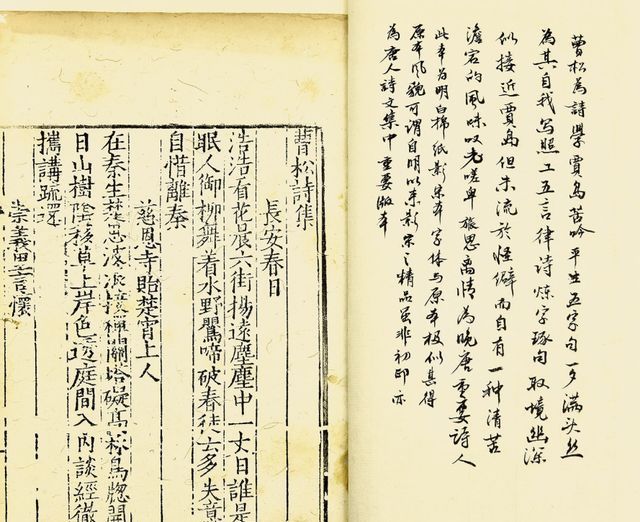 曹松為詩學賈島苦吟平生五字句一夕滿头丝
為其自我写照工五言律诗炼字琢句取境幽深
似接近賈島但未流於怪僻而自有一种清苦
澹宕的風味叹老嗟卑旅思离情為晚唐重要詩人
此本为明白棉紙影宋本字体与原本极似甚得
原本风貌可谓自明以来影宋之精品虽非初印亦
為唐人詩文集中重要版本
曹松詩集
長安春日
浩浩看花晨六街揚遠塵塵中一丈日誰是
眠人御柳舞着水野鸎啼破春徒云多失意
自惜離秦
慈恩寺貽楚霄上人
在秦生楚思波浪接禪關塔礙高林鳥窻開
日山樹陰移草上岸色透庭間入內談經徹
攜講疏還
崇義里言懷